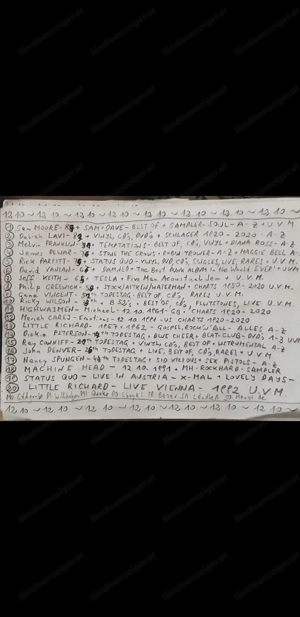 12 10 ~ 12 10 ~ 12 10 ~ 12 10 ~ 12 10 ~ 12 10 ~ 12 10 ~
① Sam MOORE - + SAM + DAVE - BEST OF + SAMPLER - SOUL - A - Z + U.V.M.
② Daliah LAVI - + VINYL, CD'S, DVD'S + SCHLAGER 1920 - 2020 - A - Z
③ Melvin FRANKLIN - TEMPTATIONS - BEST OF, CD'S, VINYL + DIANA ROSS - A - Z
④ James DEWAR - STONE THE CROWS + ROBIN TROWER - A - Z + MAGGIE BELL A-
⑤ Rick PARFITT - + STATUS QUO - VINYL, DVD, CD'S, SINGLES, LIVE, RARES + U.V.M.
⑥ David VANIAN - + DAMNED + The Best PUNK ALBUM in the WORLD EVER! + UVM
⑦ Jeff KEITH - + TESLA + Five Man Acoustical Jam + U.V.M.
⑧ Philip CRESWICK - + STOCK/AITKEN/WATERMAN + CHARTS 1950 - 2020 U.V.M.
⑨ Gene VINCENT - TODESTAG - BEST OF, CD'S, RARES U.V.M.
⑩ Ricky WILSON - + B 52'S + BEST OF, CD'S, FLINTSTONES, LIVE U.V.M.
⑪ HIGHWAYMEN - Michael - 12.10.1961 - GB: CHARTS 1920 - 2020
⑫ Mariah CAREY - Emotions - 12.10.1991 - US CHARTS 1920 - 2020
⑬ LITTLE RICHARD - 1957 + 1962 - GOSPEL, ROCK'N'ROLL - ALLES A - Z
⑭ Dickie PETERSON - TODESTAG + BLUE CHEER + BEAT-CLUB - DVD'S 1-3 UVM
⑮ Ray CONNIFF - TODESTAG + VINYL, CD'S, BEST OF + INSTRUMENTAL A - Z
⑯ John DENVER - TODESTAG + LIVE, BEST OF, CD'S, RARES + U.V.M.
⑰ Nancy SPUNGEN - TODESTAG + SID VICIOUS + SEX PISTOLS - A - Z
⑱ MACHINE HEAD - 12.10.1991 + MH - ROCKHARD - SAMPLER
⑲ STATUS QUO - LIVE IN AUSTRIA - X-MAL + LOVELY DAYS -
⑳ LITTLE RICHARD - LIVE VIENNA - 1992 U.V.M.
12 10 ~ 12 10 ~ 12 10 ~ 12 10 ~ 12 10 ~ 12 10 ~ 12 10 ~